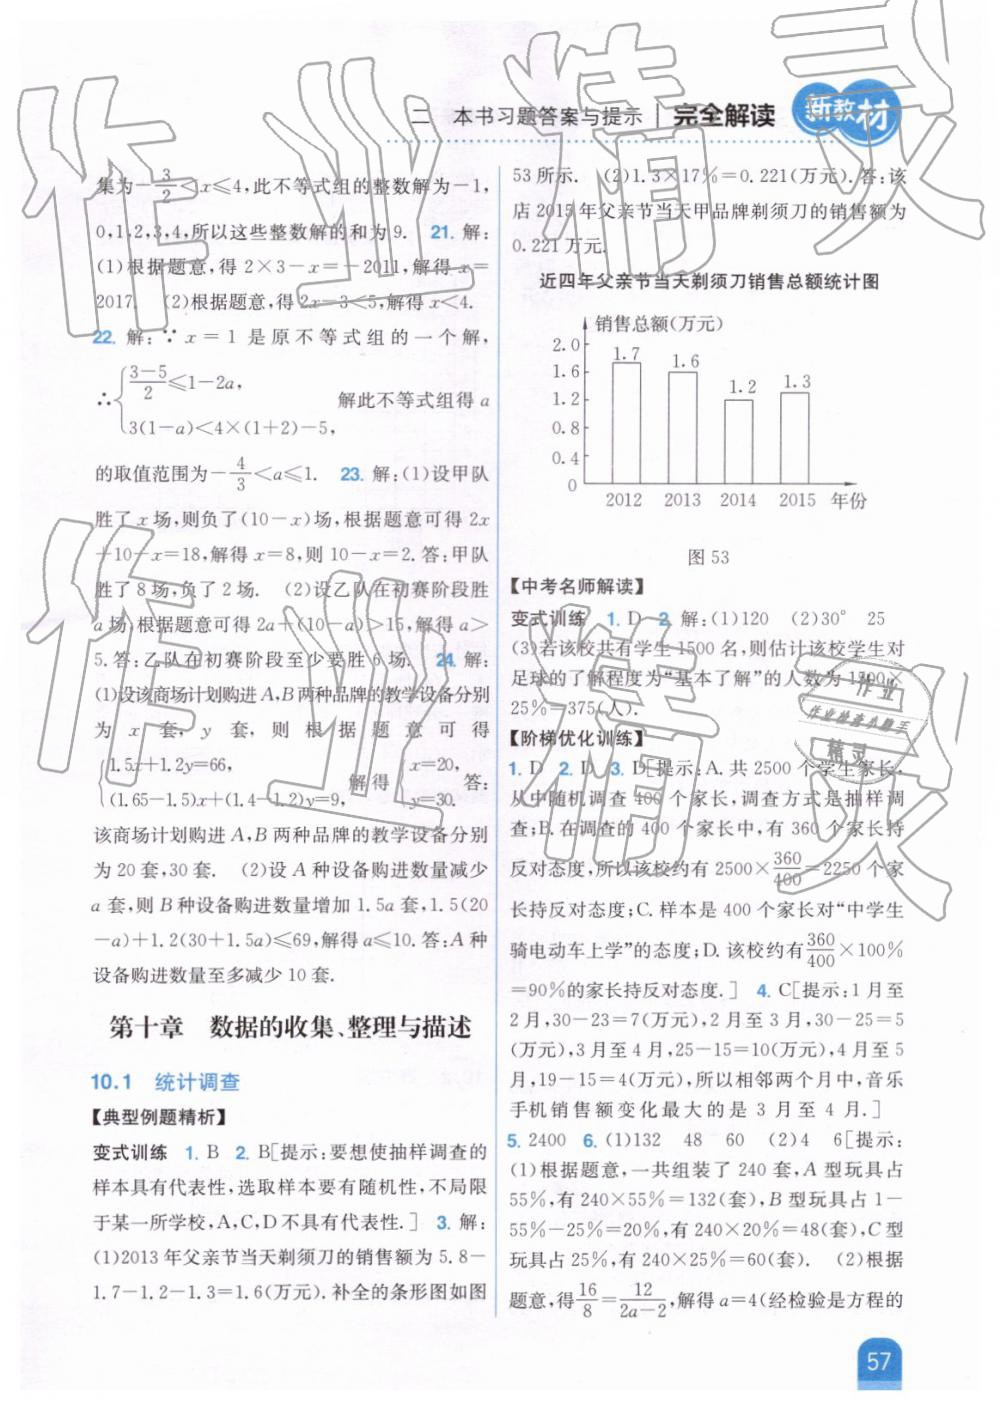 二 本书习题答案与提示 完全解读 新教材
集为-3/2<x≤4,此不等式组的整数解为-1,
0,1,2,3,4,所以这些整数解的和为9. 21. 解:
(1)根据题意,得2×3-x=-2011,解得x=
2017. (2)根据题意,得2x-3<5,解得x<4.
22. 解:∵x=1是原不等式组的一个解,
∴{(3-5)/2≤1-2a,
3(1-a)<4×(1+2)-5,
解此不等式组得a
的取值范围为-4/3<a≤1. 23. 解:(1)设甲队
胜了x场,则负了(10-x)场,根据题意可得2x
+10-x=18,解得x=8,则10-x=2.答:甲队
胜了8场,负了2场. (2)设乙队在初赛阶段胜
a场,根据题意可得2a+(10-a)>15,解得a>
5.答:乙队在初赛阶段至少要胜6场. 24. 解:
(1)设该商场计划购进A,B两种品牌的教学设备分别
为x套,y套,则根据题意可得
{1.5x+1.2y=66,
(1.65-1.5)x+(1.4-1.2)y=9,
解得{x=20,
y=30.
答:
该商场计划购进A,B两种品牌的教学设备分别
为20套,30套. (2)设A种设备购进数量减少
a套,则B种设备购进数量增加1.5a套,1.5(20
-a)+1.2(30+1.5a)≤69,解得a≤10.答:A种
设备购进数量至多减少10套.
第十章 数据的收集、整理与描述
10.1 统计调查
【典型例题精析】
变式训练 1. B 2. B[提示:要想使抽样调查的
样本具有代表性,选取样本要有随机性,不局限
于某一所学校,A,C,D不具有代表性.] 3. 解:
(1)2013年父亲节当天剃须刀的销售额为5.8-
1.7-1.2-1.3=1.6(万元).补全的条形图如图
53所示. (2)1.3×17%=0.221(万元).答:该
店2015年父亲节当天甲品牌剃须刀的销售额为
0.221万元.
近四年父亲节当天剃须刀销售总额统计图
销售总额(万元)
2.0
1.6
1.2
0.8
0.4
0
1.7
1.6
1.2
1.3
2012 2013 2014 2015 年份
图53
【中考名师解读】
变式训练 1. D 2. 解:(1)120 (2)30° 25
(3)若该校共有学生1500名,则估计该校学生对
足球的了解程度为“基本了解”的人数为1500×
25%=375(人).
【阶梯优化训练】
1. D 2. D 3. D[提示:A.共2500个学生家长,
从中随机调查400个家长,调查方式是抽样调
查;B.在调查的400个家长中,有360个家长持
反对态度,所以该校约有2500×360/400=2250个家
长持反对态度;C.样本是400个家长对“中学生
骑电动车上学”的态度;D.该校约有360/400×100%
=90%的家长持反对态度.] 4. C[提示:1月至
2月,30-23=7(万元),2月至3月,30-25=5
(万元),3月至4月,25-15=10(万元),4月至5
月,19-15=4(万元),所以相邻两个月中,音乐
手机销售额变化最大的是3月至4月.]
5. 2400 6. (1)132 48 60 (2)4 6[提示:
(1)根据题意,一共组装了240套,A型玩具占
55%,有240×55%=132(套),B型玩具占1-
55%-25%=20%,有240×20%=48(套),C型
玩具占25%,有240×25%=60(套). (2)根据
题意,得16/8=12/(2a-2),解得a=4(经检验是方程的
57
作业精灵
作业精灵
作业
作业检查小助手
精灵